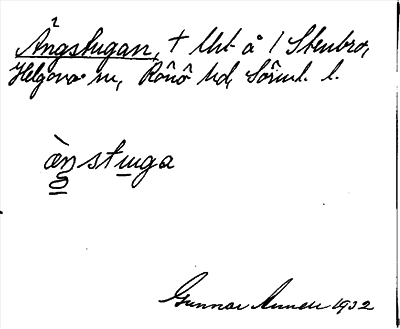 Ängstugan, † Utt å 1 Stenbro,
Helgona sn, Rönö hd, Sörml. l.
ängstuga
Gunnar 1932